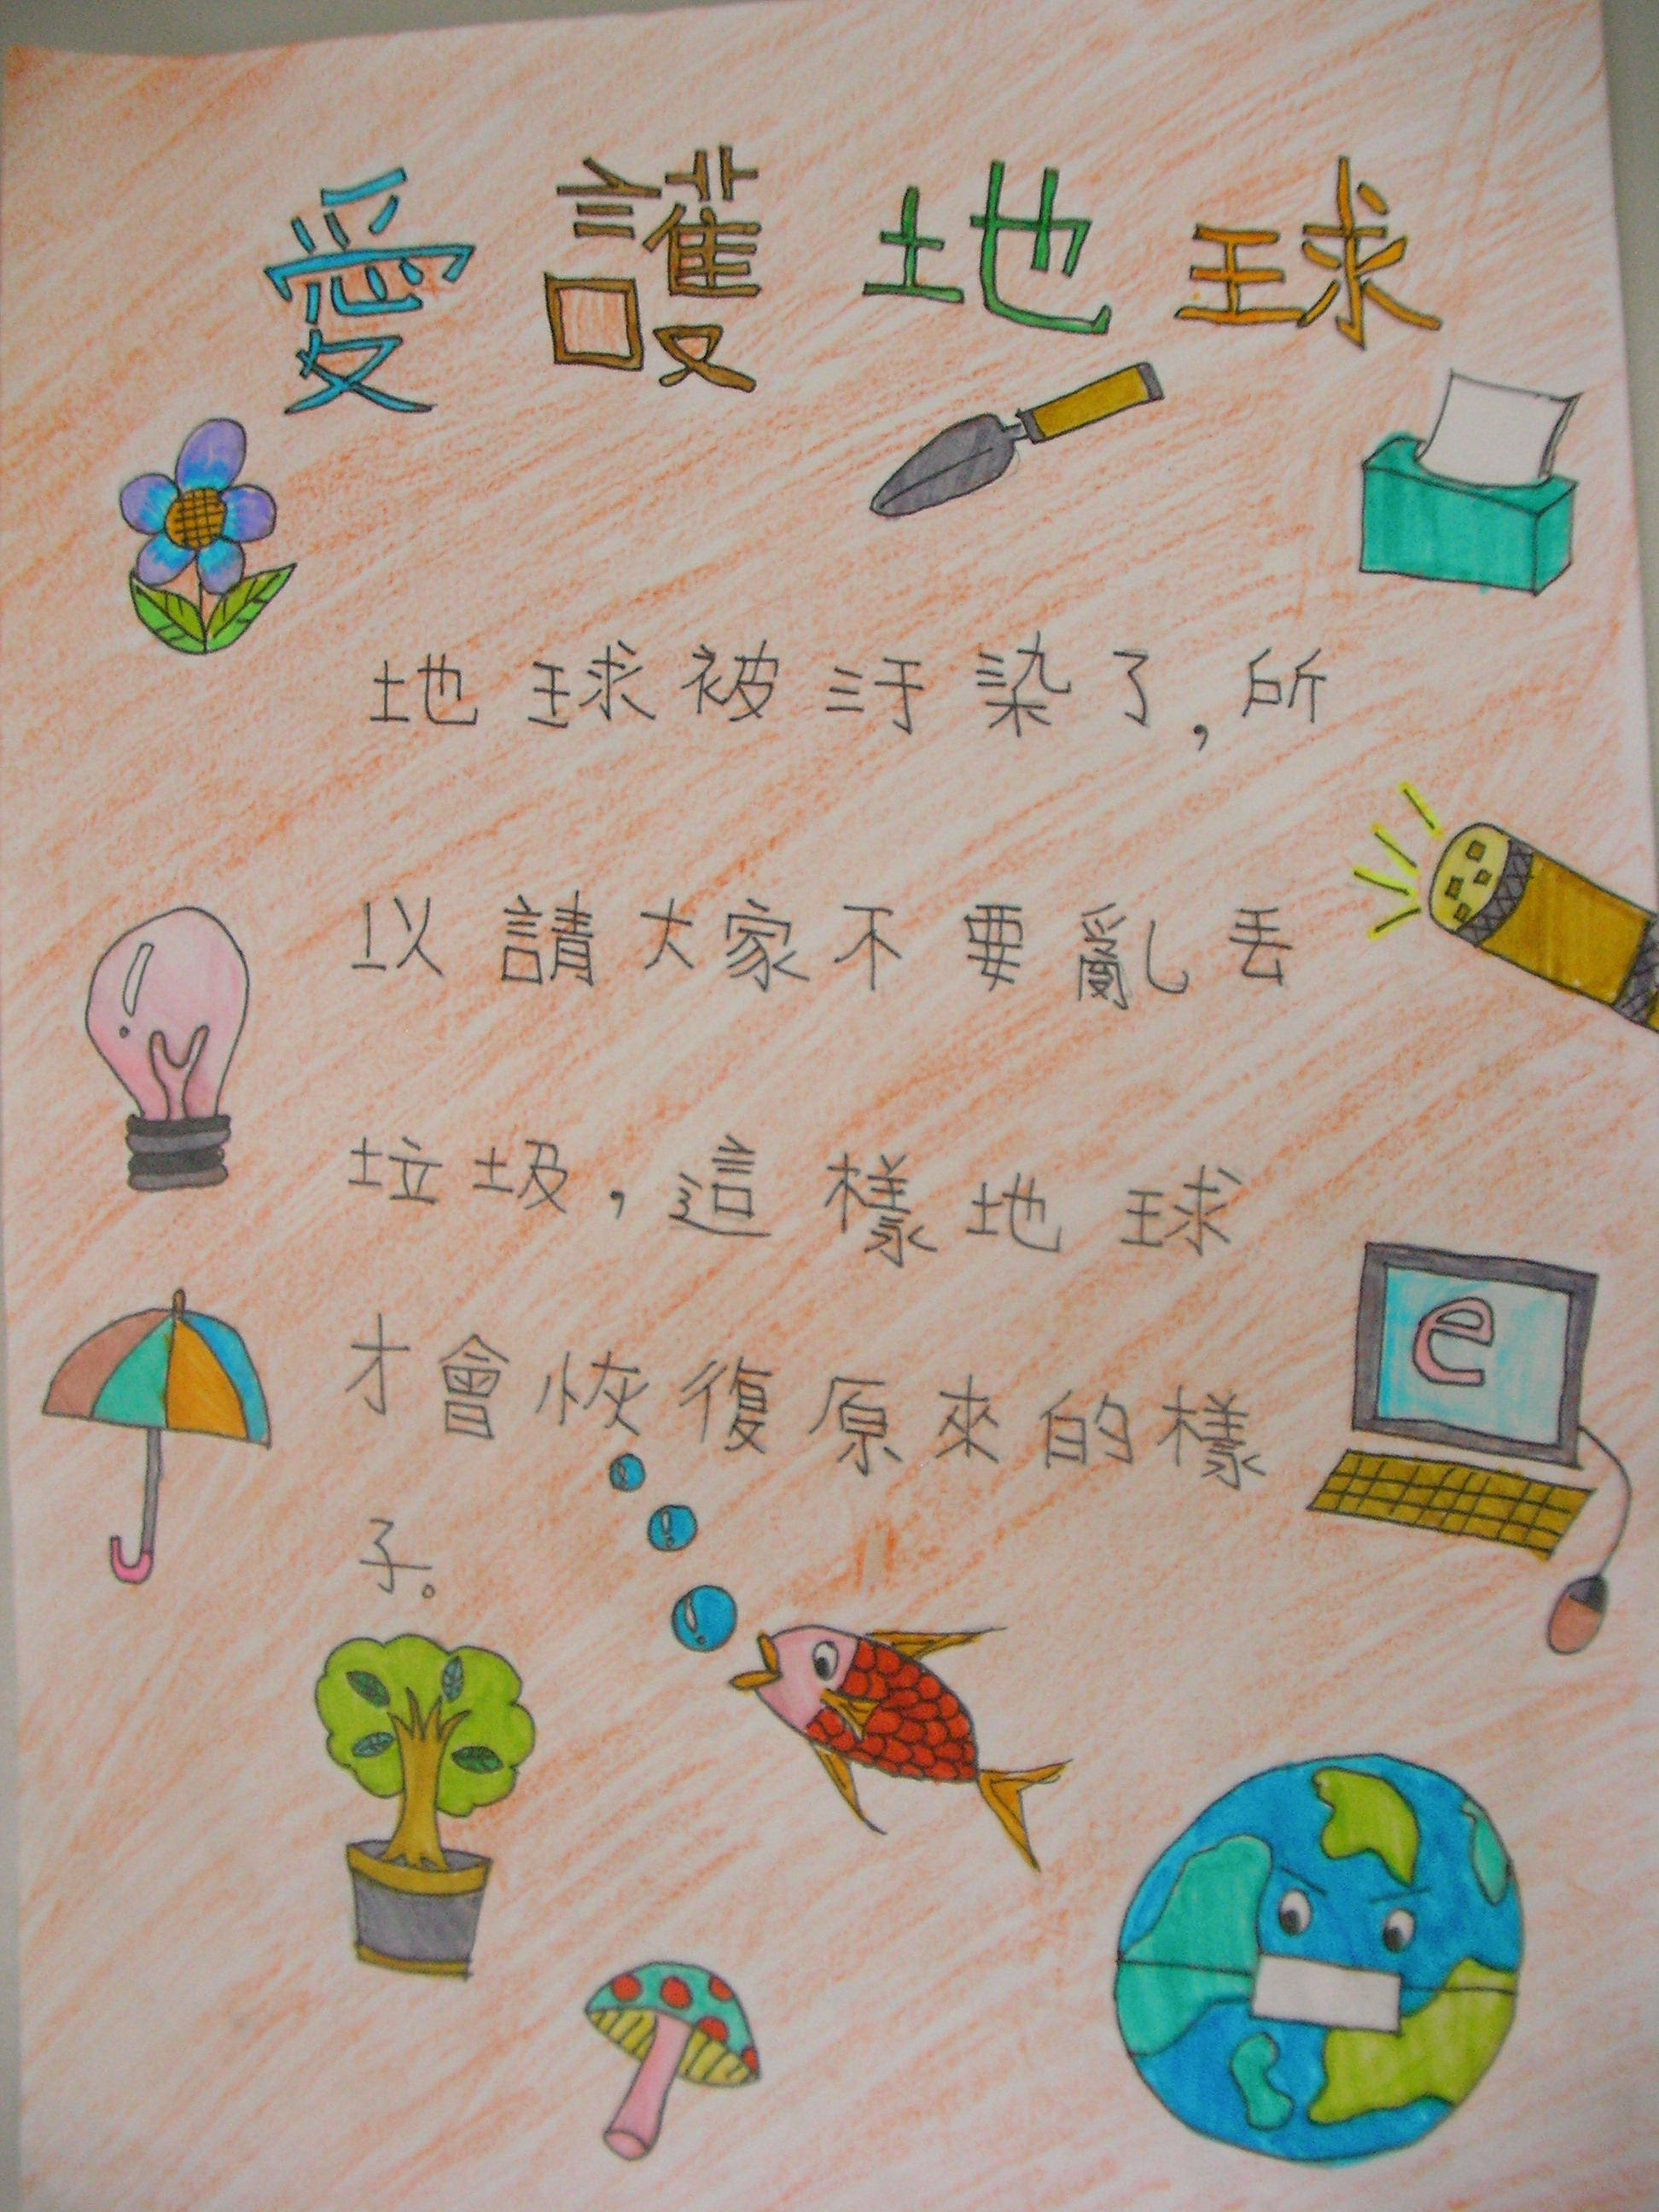 愛護地球
地球被汙染了,所
以請大家不要亂丟
垃圾,這樣地球
才會恢復原來的樣
子。
e